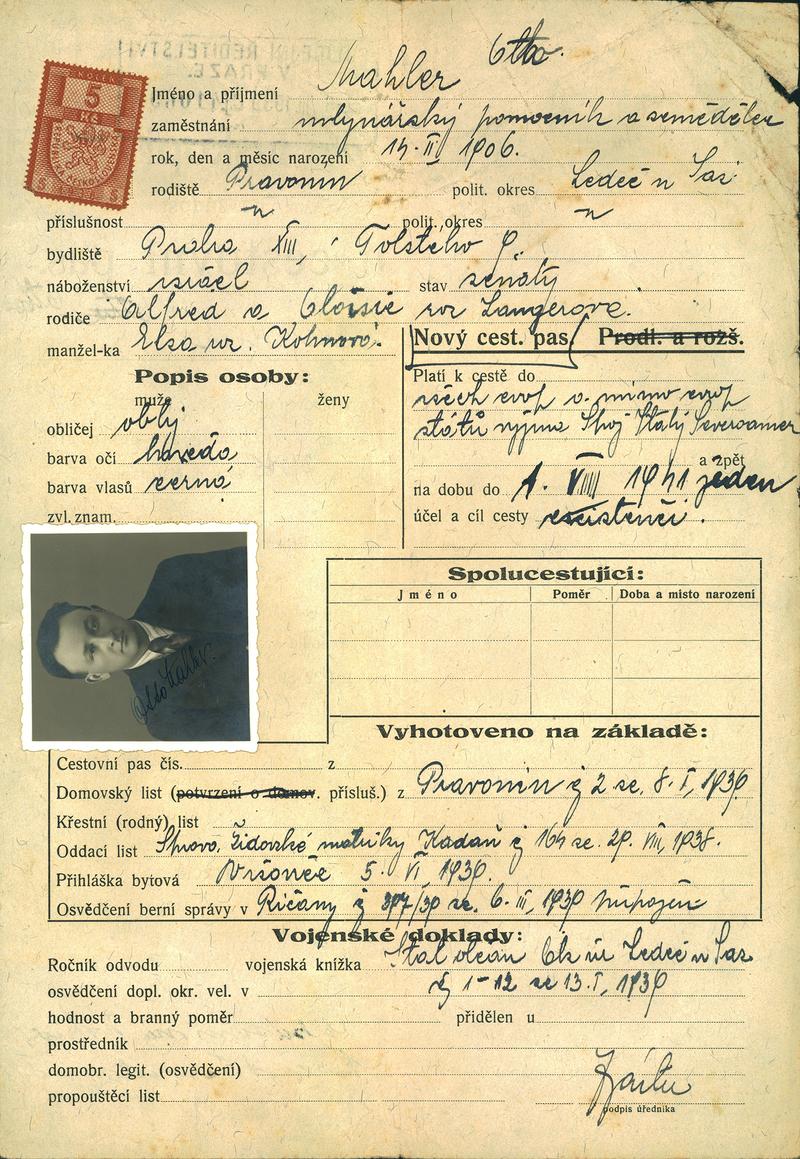 KOLEK
5
Kč
Mahler Otto
Jméno a příjmení
zaměstnání mlynářský pomocník a zemědělec
rok, den a měsíc narození 14. II. 1906.
rodiště Pravonin polit. okres Ledeč n Sáz
příslušnost " polit. okres "
bydliště Praha XIII, Tolstého 9.
náboženství israel stav ženatý
rodiče Alfred a Aloisie roz Langerová.
manžel-ka Elsa roz. Kohnová.
Nový cest. pas. Prodl. a rozš.
Popis osoby:
muže ženy
obličej oblý
barva očí hnědá
barva vlasů černá
zvl. znam.
Platí k cestě do
všech evrop a mimo evrop
států vyjma Spoj Státy Severoamer
a zpět
na dobu do 1. VIII 1941 jeden
účel a cíl cesty existenční.
Otto Mahler
Spolucestující:
Jméno Poměr Doba a místo narození
Vyhotoveno na základě:
Cestovní pas čís. z
Domovský list (potvrzení o domov. přísluš.) z Pravonin č 2 ze 8. I. 1939
Křestní (rodný) list
Oddací list Židovské matriky Kadaň č 164 ze 29. VIII, 1938.
Přihláška bytová Vršovice 5. VI 1939.
Osvědčení berní správy v Říčany č 397/39 ze 6. III, 1939
Vojenské doklady:
Ročník odvodu vojenská knížka Stát občan Ok úř Ledeč n Sáz
osvědčení dopl. okr. vel. v č 1-12 ze 13. I, 1939
hodnost a branný poměr přidělen u
prostředník
domobr. legit. (osvědčení)
propouštěcí list
podpis úředníka